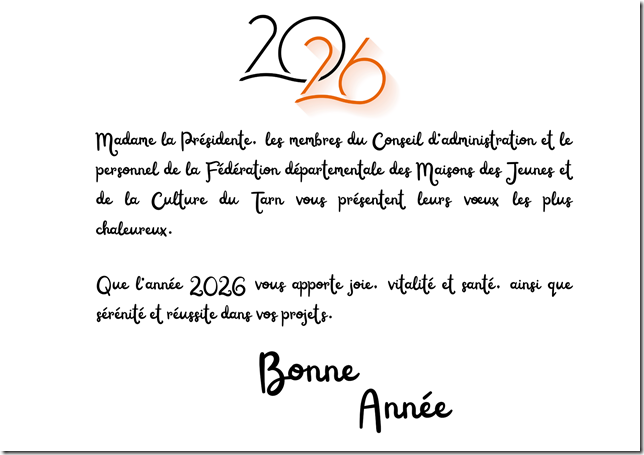 2026
Madame la Présidente, les membres du Conseil d'administration et le
personnel de la Fédération départementale des Maisons des Jeunes et
de la Culture du Tarn vous présentent leurs vœux les plus
chaleureux.
Que l'année 2026 vous apporte joie, vitalité et santé, ainsi que
sérénité et réussite dans vos projets.
Bonne
Année